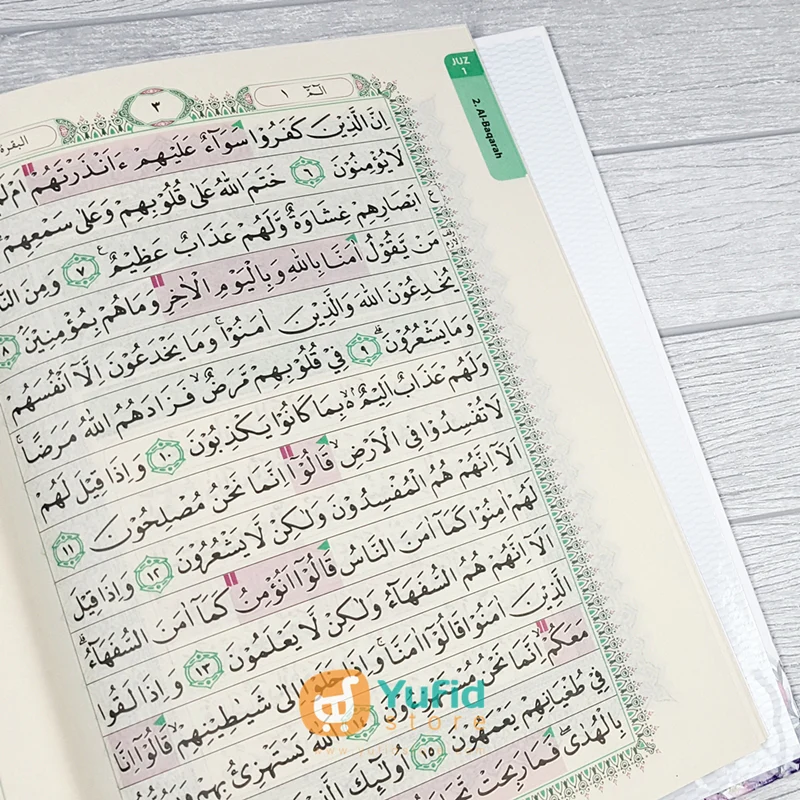 JUZ
1
2. Al-Baqarah
الۤمّۤ ١
٣
البقرة
اِنَّ الَّذِيْنَ كَفَرُوْا سَوَاۤءٌ عَلَيْهِمْ ءَاَنْذَرْتَهُمْ اَمْ لَمْ
لَا يُؤْمِنُوْنَ ٦ خَتَمَ اللّٰهُ عَلٰى قُلُوْبِهِمْ وَعَلٰى سَمْعِهِمْ
اَبْصَارِهِمْ غِشَاوَةٌ وَّلَهُمْ عَذَابٌ عَظِيْمٌ ٧ وَمِنَ
مَنْ يَّقُوْلُ اٰمَنَّا بِاللّٰهِ وَبِالْيَوْمِ الْاٰخِرِ وَمَا هُمْ بِمُؤْمِنِيْنَ ٨
يُخٰدِعُوْنَ اللّٰهَ وَالَّذِيْنَ اٰمَنُوْا وَمَا يَخْدَعُوْنَ اِلَّآ اَنْفُسَهُمْ
وَمَا يَشْعُرُوْنَ ٩ فِيْ قُلُوْبِهِمْ مَّرَضٌ فَزَادَهُمُ اللّٰهُ مَرَضًا
وَلَهُمْ عَذَابٌ اَلِيْمٌ بِمَا كَانُوْا يَكْذِبُوْنَ ١٠ وَاِذَا قِيْلَ لَهُمْ
لَا تُفْسِدُوْا فِى الْاَرْضِ قَالُوْٓا اِنَّمَا نَحْنُ مُصْلِحُوْنَ ١١
اَلَآ اِنَّهُمْ هُمُ الْمُفْسِدُوْنَ وَلٰكِنْ لَّا يَشْعُرُوْنَ ١٢ وَاِذَا قِيْلَ
لَهُمْ اٰمِنُوْا كَمَآ اٰمَنَ النَّاسُ قَالُوْٓا اَنُؤْمِنُ كَمَآ اٰمَنَ السُّفَهَاۤءُ
اَلَآ اِنَّهُمْ هُمُ السُّفَهَاۤءُ وَلٰكِنْ لَّا يَعْلَمُوْنَ ١٣ وَاِذَا لَقُوا
الَّذِيْنَ اٰمَنُوْا قَالُوْٓا اٰمَنَّا وَاِذَا خَلَوْا اِلٰى شَيٰطِيْنِهِمْ قَالُوْٓا اِنَّا
مَعَكُمْ اِنَّمَا نَحْنُ مُسْتَهْزِءُوْنَ ١٤ اَللّٰهُ يَسْتَهْزِئُ بِهِمْ وَيَمُدُّهُمْ
فِيْ طُغْيَانِهِمْ يَعْمَهُوْنَ ١٥ اُولٰۤىِٕكَ الَّذِيْنَ
بِالْهُدٰى فَمَا رَبِحَتْ تِّجَارَتُهُمْ
Yufid
store